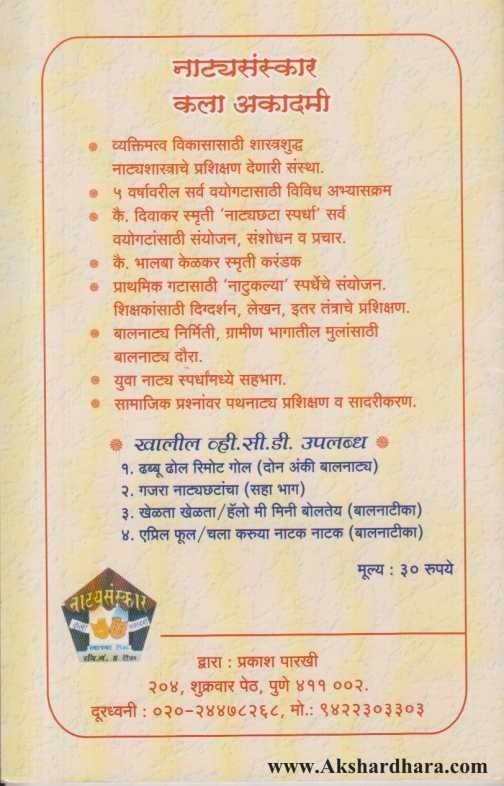 नाट्यसंस्कार
कला अकादमी
व्यक्तिमत्व विकासासाठी शास्त्रशुद्ध
नाट्यशास्त्राचे प्रशिक्षण देणारी संस्था.
५ वर्षावरील सर्व वयोगटासाठी विविध अभ्यासक्रम
कै. दिवाकर स्मृती 'नाट्यछटा स्पर्धा' सर्व
वयोगटांसाठी संयोजन, संशोधन व प्रचार.
कै. भालबा केळकर स्मृती करंडक
प्राथमिक गटासाठी 'नाटुकल्या' स्पर्धेचे संयोजन.
शिक्षकांसाठी दिग्दर्शन, लेखन, इतर तंत्राचे प्रशिक्षण.
बालनाट्य निर्मिती, ग्रामीण भागातील मुलांसाठी
बालनाट्य दौरा.
युवा नाट्य स्पर्धांमध्ये सहभाग.
सामाजिक प्रश्नांवर पथनाट्य प्रशिक्षण व सादरीकरण.
खालील व्ही.सी.डी. उपलब्ध
१. ढब्बू ढोल रिमोट गोल (दोन अंकी बालनाट्य)
२. गजरा नाट्यछटांचा (सहा भाग)
३. खेळता खेळता/हॅलो मी मिनी बोलतेय (बालनाटीका)
४. एप्रिल फूल/चला करुया नाटक नाटक (बालनाटीका)
मूल्य : ३० रुपये
नाट्यसंस्कार
कला अकादमी
द्वारा : प्रकाश पारखी
२०४, शुक्रवार पेठ, पुणे ४११ ००२.
दूरध्वनी : ०२०-२४४७८२६८, मो.: ९४२२३०३३०३
www.Akshardhara.com